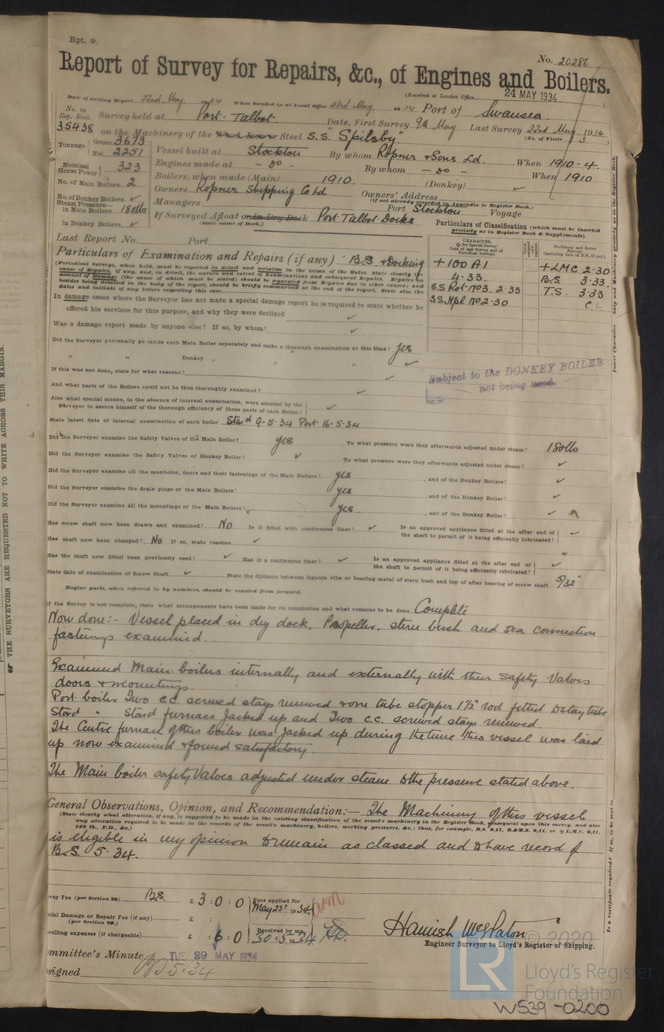 Rpt. 9.
No. 20286.
Report of Survey for Repairs, &c., of Engines and Boilers.
(Received at London Office 24 MAY 1934
Date of writing Report 22nd May 1934 When handed in at Local Office 23rd May 1934 Port of Swansea
No. in Reg. Book 35438 Survey held at Port Talbot Date, First Survey 9th May Last Survey 22nd May 1934
(No. of Visits 3
on the Machinery of the Steel S.S. "Spilsby"
Tonnage Gross 3673
Net 2251
Vessel built at Stockton By whom Ropner & Sons Ld. When 1910-4
Nominal Horse Power 323
Engines made at - do - By whom - do - When 1910
No. of Main Boilers 2
Boilers, when made (Main) 1910. (Donkey) ✓
No. of Donkey Boilers ✓
Owners Ropner Shipping Co Ld Owners' Address
(If not already recorded in Appendix to Register Book)
Steam Pressure in Main Boilers 180 lbs
Managers Port Stockton Voyage
in Donkey Boilers ✓
If Surveyed Afloat or in Dry Dock Port Talbot Docks
(State name of Dock.)
Particulars of Classification (which must be inserted precisely as in Register Book & Supplements).
Last Report No. Port
Particulars of Examination and Repairs (if any) B.S. & Docking
+100 A1
4-33
SS Rot No3. 2.33
SS Hpl No2-30
+LMC 2-30
B.S. 3-33
T.S. 3-33
C.L.
In damage cases where the Surveyor has not made a special damage report he is required to state whether he
offered his services for this purpose, and why they were declined ✓
Was a damage report made by anyone else? If so, by whom? ✓
Did the Surveyor personally go inside each Main Boiler separately and make a thorough examination at this time? yes
" " Donkey " " " ✓
Subject to the DONKEY BOILER
not being used.
If this was not done, state for what reasons? ✓
And what parts of the Boilers could not be thus thoroughly examined? ✓
Also what special means, in the absence of internal examination, were adopted by the
Surveyor to assure himself of the thorough efficiency of those parts of each Boiler? ✓
State latest date of internal examination of each boiler Starbd 9-5-34 Port 16-5-34
Did the Surveyor examine the Safety Valves of the Main Boiler? yes To what pressure were they afterwards adjusted under steam? 180 lbs
Did the Surveyor examine the Safety Valves of Donkey Boiler? ✓ To what pressure were they afterwards adjusted under steam? ✓
Did the Surveyor examine all the manholes, doors and their fastenings of the Main Boilers? yes , and of the Donkey Boiler? ✓
Did the Surveyor examine the drain plugs of the Main Boilers? yes , and of the Donkey Boiler? ✓
Did the Surveyor examine all the mountings of the Main Boilers? yes , and of the Donkey Boiler? ✓
Has screw shaft now been drawn and examined? No Is it fitted with continuous liner? ✓ Is an approved appliance fitted at the after end of
the shaft to permit of it being efficiently lubricated? ✓
Has shaft now been changed? No If so, state reasons ✓
Has the shaft now fitted been previously used? ✓ Has it a continuous liner? ✓ Is an approved appliance fitted at the after end of
the shaft to permit of it being efficiently lubricated? ✓
State date of examination of Screw Shaft ✓ State the distance between lignum vitæ or bearing metal of stern bush and top of after bearing of screw shaft 5/32"
Engine parts when referred to by numbers, should be counted from forward.
If the Survey is not complete, state what arrangements have been made for its completion and what remains to be done Complete
Now done:- Vessel placed in dry dock, Propeller, stern bush and sea connection
fastenings examined.
Examined Main boilers internally and externally with their Safety Valves
doors & mountings.
Port boiler Two c.c. screwed stays renewed & one tube stopper 1½" rod fitted to stay tube
Starbd " Starbd furnace Jacked up and Two c.c. screwed stays renewed.
The Centre furnace of this boiler was Jacked up during the time this vessel was laid
up now examined & found satisfactory.
The Main boiler safety Valves adjusted under steam to the pressure stated above.
General Observations, Opinion, and Recommendation:— The Machinery of this vessel
is eligible in my opinion to remain as classed and to have record of
B.S. 5.34.
Survey Fee (per Section 29) B.S. £ 3 : 0 : 0 Fees applied for May 23rd 1934
Special Damage or Repair Fee (if any) (per Section 29.) £
Travelling expenses (if chargeable) £ : 6 : 0 Received by me 30.5.34
Engineer Surveyor to Lloyd's Register of Shipping.
Committee's Minute TUE 29 MAY 1934
Assigned 5.34
THE SURVEYORS ARE REQUESTED NOT TO WRITE ACROSS THIS MARGIN.
© 2020
LR Lloyd's Register
Foundation
W539-0200